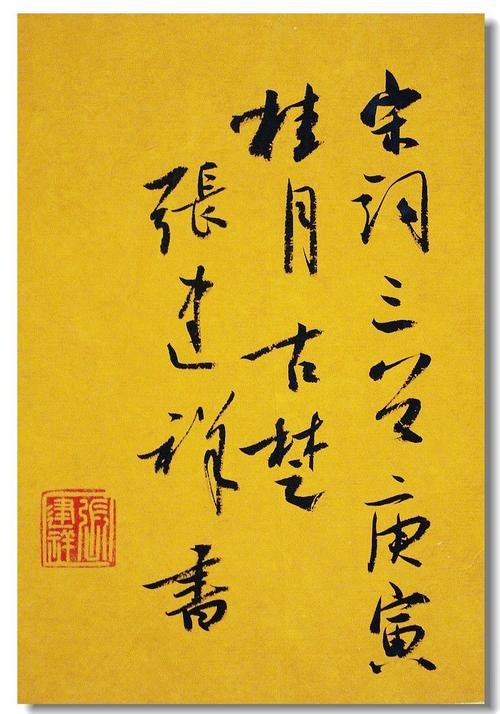 宋詞三首庚寅
桂月古楚
張建祥書